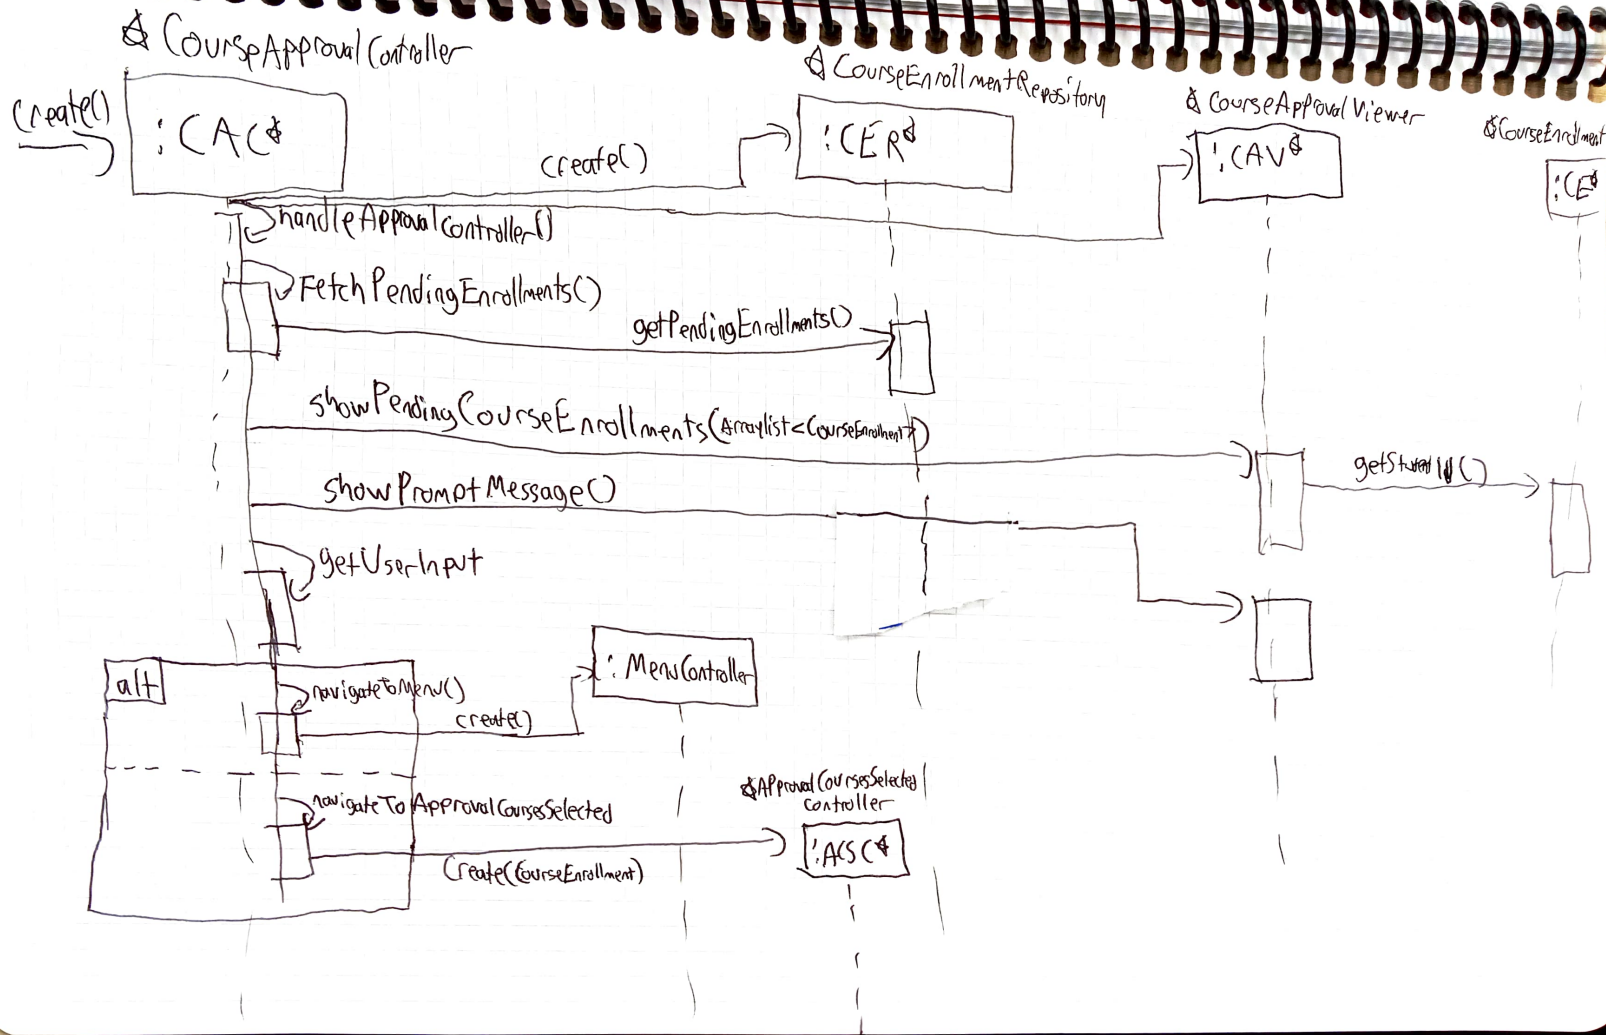 CourseApprovalController
CourseEnrollmentRepository
CourseApprovalViewer
CourseEnrollment
create()
:CAC
:CER
:CAV
:CE
create()
handleApprovalController()
FetchPendingEnrollments()
getPendingEnrollments()
showPendingCourseEnrollments(Arraylist<CourseEnrollment>)
getStudentId()
showPromptMessage()
getUserInput
alt
navigateToMenu()
:MenuController
create()
navigateToApprovalCoursesSelected
APProvalCoursesSelected
Controller
:ACSC
Create(CourseEnrollment)